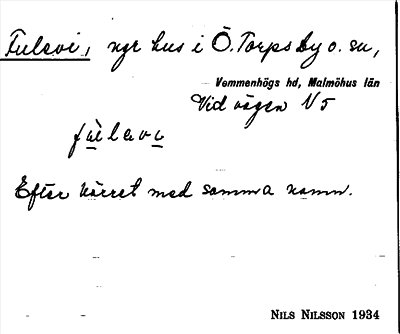 Fulevi, ngr hus i Ö. Torps by o. sn,
Vemmenhögs hd, Malmöhus län
Vid vägen N 5
fùlevi
Efter kärret med samma namn.
NILS NILSSON 1934